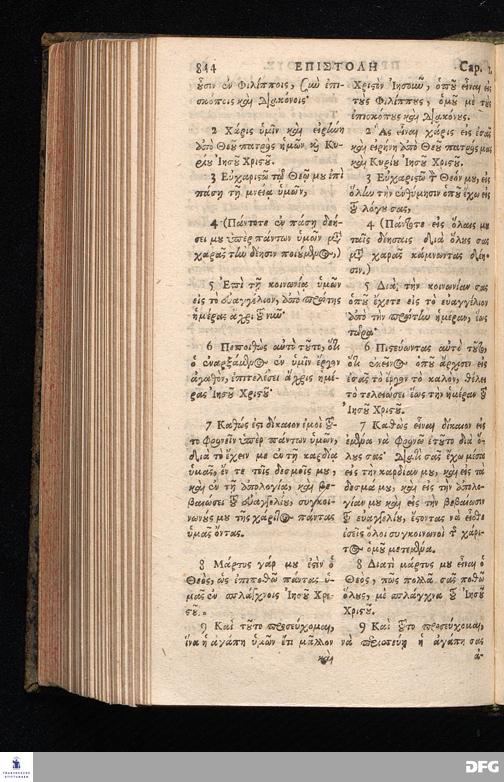 844 ΕΠΙΣΤΟΛΗ Cap. 1.
οὖσιν ἐν Φιλίπποις, σὺν ἐπι-
σκόποις καὶ Διακόνοις·
2 Χάρις ὑμῖν καὶ εἰρήνη
ἀπὸ Θεοῦ πατρὸς ἡμῶν καὶ Κυ-
ρίου Ἰησοῦ Χριστοῦ.
3 Εὐχαριστῶ τῷ Θεῷ μου ἐπὶ
πάσῃ τῇ μνείᾳ ὑμῶν,
4 (Πάντοτε ἐν πάσῃ δεή-
σει μου ὑπὲρ πάντων ὑμῶν μετὰ
χαρᾶς τὴν δέησιν ποιούμενος,)
5 Ἐπὶ τῇ κοινωνίᾳ ὑμῶν
εἰς τὸ εὐαγγέλιον, ἀπὸ πρώτης
ἡμέρας ἄχρι τοῦ νῦν·
6 Πεποιθὼς αὐτὸ τοῦτο, ὅτι
ὁ ἐναρξάμενος ἐν ὑμῖν ἔργον
ἀγαθὸν, ἐπιτελέσει ἄχρις ἡμέ-
ρας Ἰησοῦ Χριστοῦ·
7 Καθώς ἐστι δίκαιον ἐμοὶ τοῦ-
το φρονεῖν ὑπὲρ πάντων ὑμῶν,
διὰ τὸ ἔχειν με ἐν τῇ καρδίᾳ
ὑμᾶς, ἔν τε τοῖς δεσμοῖς μου,
καὶ ἐν τῇ ἀπολογίᾳ, καὶ βε-
βαιώσει τοῦ εὐαγγελίου, συγκοι-
νωνούς μου τῆς χάριτος πάντας
ὑμᾶς ὄντας.
8 Μάρτυς γάρ μου ἐστὶν ὁ
Θεὸς, ὡς ἐπιποθῶ πάντας ὑ-
μᾶς ἐν σπλάγχνοις Ἰησοῦ Χρι-
στοῦ.
9 Καὶ τοῦτο προσεύχομαι,
ἵνα ἡ ἀγάπη ὑμῶν ἔτι μᾶλλον
καὶ
Χριστὸν Ἰησοῦν, ὁποῦ εἶναι εἰς
τοὺς Φιλίππους, ὁμοῦ μὲ τοὺς
ἐπισκόπους καὶ Διακόνους.
2 Ἂς εἶναι χάρις εἰς ἐσᾶς
καὶ εἰρήνη ἀπὸ Θεοῦ πατρός μας
καὶ Κυρίου Ἰησοῦ Χριστοῦ.
3 Εὐχαριστῶ τὸν Θεόν μου, εἰς
ὅλην τὴν ἐνθύμησιν ὁποῦ ἔχω εἰς
τοῦ λόγου σας,
4 (Πάντοτε εἰς ὅλαις μου
ταῖς δέησαις διὰ ὅλους σας
μετὰ χαρᾶς κάμνωντας δέη-
σιν.)
5 Διὰ τὴν κοινωνίαν σας
ὁποῦ ἔχετε εἰς τὸ εὐαγγέλιον
ἀπὸ τὴν πρώτην ἡμέραν, ἕως
τώρα·
6 Πιστεύωντας αὐτὸ τοῦτο,
ὅτι ἐκεῖνος ὁποῦ ἄρχισεν εἰς
ἐσᾶς τὸ ἔργον τὸ καλὸν, θέλει
τὸ τελειώσει ἕως τὴν ἡμέραν τοῦ
Ἰησοῦ Χριστοῦ.
7 Καθὼς εἶναι δίκαιον εἰς
ἐμένα νὰ φρονῶ ἐτοῦτο διὰ ὅ-
λους σας· Διατὶ σᾶς ἔχω μέσα
εἰς τὴν καρδίαν μου, καὶ εἰς τὰ
δεσμά μου, καὶ εἰς τὴν ἀπολο-
γίαν μου καὶ εἰς τὴν βεβαίωσιν
τοῦ εὐαγγελίου, ἔσοντας νὰ εἶσθε
ἐσεῖς ὅλοι συγκοινωνοὶ τῆς χάρι-
τος ὁμοῦ μετεμένα.
8 Διατὶ μάρτυς μου εἶναι ὁ
Θεὸς, πῶς πολλὰ σᾶς ποθῶ
ὅλους, μὲ σπλάγχνα τοῦ Ἰησοῦ
Χριστοῦ.
9 Καὶ τοῦτο προσεύχομαι,
νὰ περισσεύῃ ἡ ἀγάπη σας
FRANCKESCHE STIFTUNGEN
DFG